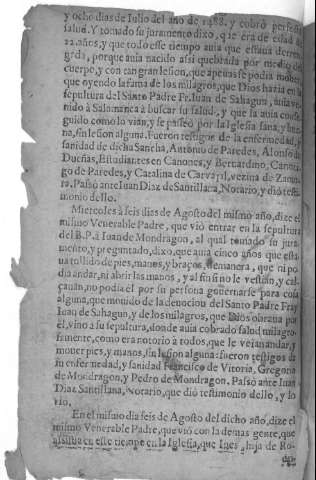 y ocho dias de Iulio del año de 1488. y cobrò perfecta
salud. Y tomado su juramento dixo, que era de edad de
22. años, y que todo esse tiempo auia que estaua derren-
gada, porque auia nacido assi quebrada por medio del
cuerpo, y con tan gran lesion, que apenas se podia mouer
que oyendo la fama de los milagros, que Dios hazia en la
sepultura del Santo Padre Fr. Iuan de Sahagun, auia ve-
nido à Salamanca à buscar su salud, y que la auia conse-
guido como lo vian, y se passeó por la Iglesia sana, y bue-
na, sin lesion alguna. Fueron testigos de la enfermedad, y
sanidad de dicha Sancha, Antonio de Paredes, Alonso de
Dueñas, Estudiantes en Canones, y Bernardino, Canoni-
go de Paredes, y Catalina de Carvajal, vezina de Zamo-
ra. Passó ante Iuan Diaz de Santillana, Notario, y dió testi-
monio dello.
Miercoles à seis dias de Agosto del mismo año, dize el
mismo Venerable Padre, que vió entrar en la sepultura
del B.P. à Iuan de Mondragon, al qual tomado su jura-
mento, y preguntado, dixo, que auia cinco años que esta-
ua tullido de pies, manos, y braços, de manera, que ni po-
dia andar, ni abrir las manos, y al fin si no le vestian, y cal-
çauan, no podia èl por su persona gouernarse para cosa
alguna, que mouido de la deuocion del Santo Padre Fray
Iuan de Sahagun, y de los milagros, que Dios obraua por
èl, vino à su sepultura, donde auia cobrado salud milagro-
samente, como era notorio à todos, que le veian andar, y
mouer pies, y manos, sin lesion alguna: fueron testigos de
su enfermedad, y sanidad Francisco de Vitoria, Gregorio
de Mondragon, y Pedro de Mondragon. Passó ante Iuan
Diaz Santillana, Notario, que dió testimonio dello, y lo

En el mismo dia seis de Agosto del dicho año, dize el
mismo Venerable Padre, que vió con la demas gente, que
assistia en esse tiempo en la Iglesia, que Ines, hija de Ro-